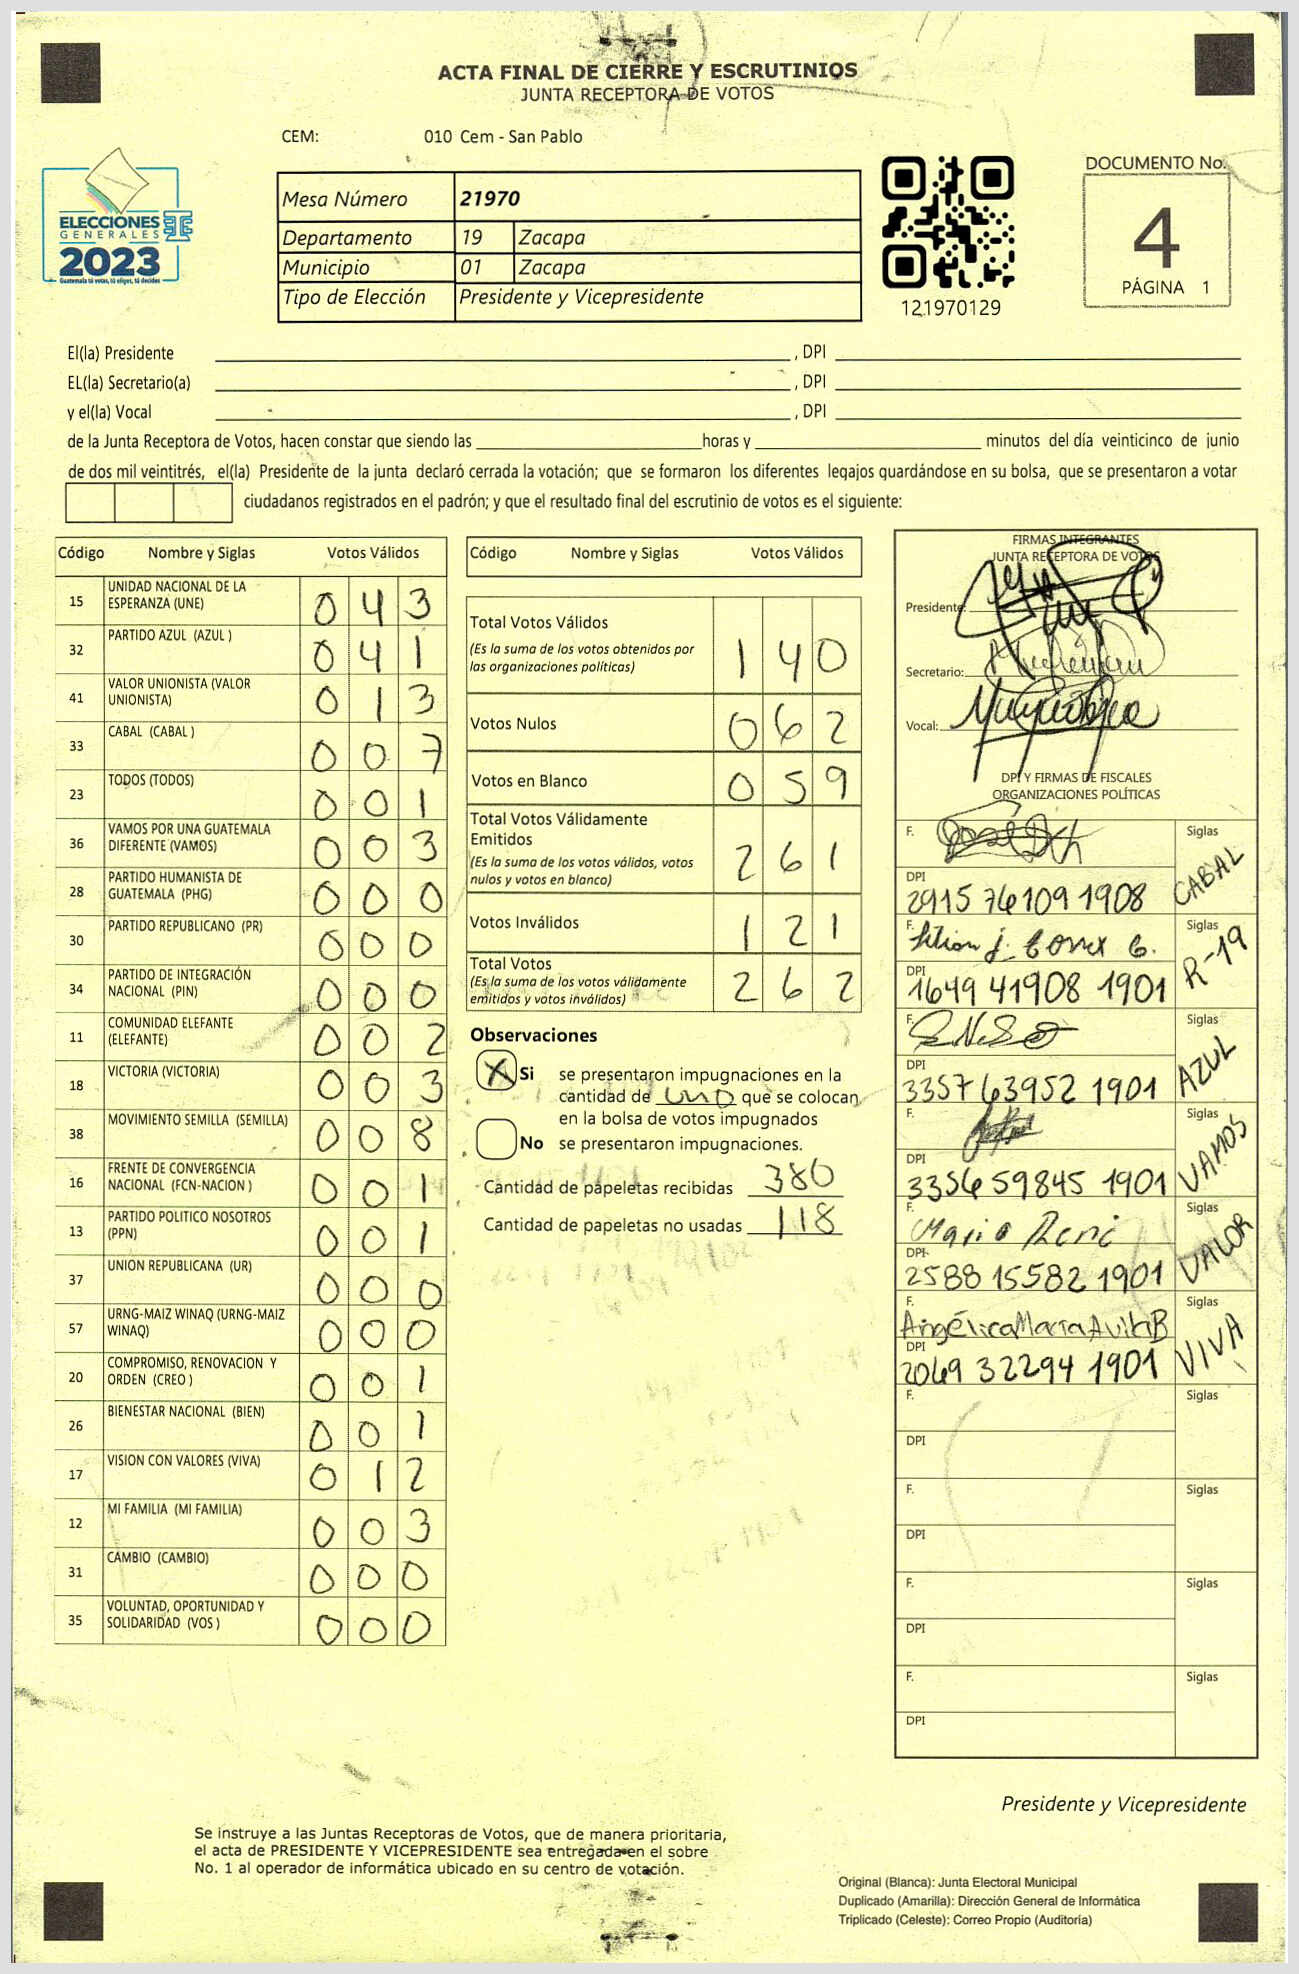 ACTA FINAL DE CIERRE Y ESCRUTINIOS
JUNTA RECEPTORA DE VOTOS
CEM: 010 Cem - San Pablo
ELECCIONES
GENERALES
2023
Guatemala tú votas, tú eliges, tú decides
Mesa Número 21970
Departamento 19 Zacapa
Municipio 01 Zacapa
Tipo de Elección Presidente y Vicepresidente
121970129
DOCUMENTO No.
4
PÁGINA 1
El(la) Presidente , DPI
EL(la) Secretario(a) , DPI
y el(la) Vocal , DPI
de la Junta Receptora de Votos, hacen constar que siendo las horas y minutos del día veinticinco de junio
de dos mil veintitrés, el(la) Presidente de la junta declaró cerrada la votación; que se formaron los diferentes legajos guardándose en su bolsa, que se presentaron a votar
ciudadanos registrados en el padrón; y que el resultado final del escrutinio de votos es el siguiente:
Código Nombre y Siglas Votos Válidos
15 UNIDAD NACIONAL DE LA ESPERANZA (UNE) 043
32 PARTIDO AZUL (AZUL ) 041
41 VALOR UNIONISTA (VALOR UNIONISTA) 013
33 CABAL (CABAL ) 007
23 TODOS (TODOS) 001
36 VAMOS POR UNA GUATEMALA DIFERENTE (VAMOS) 003
28 PARTIDO HUMANISTA DE GUATEMALA (PHG) 000
30 PARTIDO REPUBLICANO (PR) 000
34 PARTIDO DE INTEGRACIÓN NACIONAL (PIN) 000
11 COMUNIDAD ELEFANTE (ELEFANTE) 002
18 VICTORIA (VICTORIA) 003
38 MOVIMIENTO SEMILLA (SEMILLA) 008
16 FRENTE DE CONVERGENCIA NACIONAL (FCN-NACION ) 001
13 PARTIDO POLITICO NOSOTROS (PPN) 001
37 UNION REPUBLICANA (UR) 000
57 URNG-MAIZ WINAQ (URNG-MAIZ WINAQ) 000
20 COMPROMISO, RENOVACION Y ORDEN (CREO ) 001
26 BIENESTAR NACIONAL (BIEN) 001
17 VISION CON VALORES (VIVA) 012
12 MI FAMILIA (MI FAMILIA) 003
31 CAMBIO (CAMBIO) 000
35 VOLUNTAD, OPORTUNIDAD Y SOLIDARIDAD (VOS ) 000
Código Nombre y Siglas Votos Válidos
Total Votos Válidos 140
(Es la suma de los votos obtenidos por
las organizaciones políticas)
Votos Nulos 062
Votos en Blanco 059
Total Votos Válidamente
Emitidos 261
(Es la suma de los votos válidos, votos
nulos y votos en blanco)
Votos Inválidos 121
Total Votos 262
(Es la suma de los votos válidamente
emitidos y votos inválidos)
Observaciones
X Si se presentaron impugnaciones en la
cantidad de uno que se colocan
en la bolsa de votos impugnados
No se presentaron impugnaciones.
Cantidad de papeletas recibidas 380
Cantidad de papeletas no usadas 118
FIRMAS INTEGRANTES
JUNTA RECEPTORA DE VOTOS
Presidente:
Secretario:
Vocal:
DPI Y FIRMAS DE FISCALES
ORGANIZACIONES POLÍTICAS
F. Siglas CABAL
DPI 2915 76109 1908
F. Siglas R-19
DPI 1649 41908 1901
F. Siglas AZUL
DPI 3357 63952 1901
F. Siglas VAMOS
DPI 3356 59845 1901
F. Mario René Siglas VALOR
DPI 2588 15582 1901
F. Angélica María Avila B Siglas VIVA
DPI 2069 32294 1901
F. Siglas
DPI
F. Siglas
DPI
F. Siglas
DPI
F. Siglas
DPI
Presidente y Vicepresidente
Se instruye a las Juntas Receptoras de Votos, que de manera prioritaria,
el acta de PRESIDENTE Y VICEPRESIDENTE sea entregada en el sobre
No. 1 al operador de informática ubicado en su centro de votación.
Original (Blanca): Junta Electoral Municipal
Duplicado (Amarilla): Dirección General de Informática
Triplicado (Celeste): Correo Propio (Auditoría)